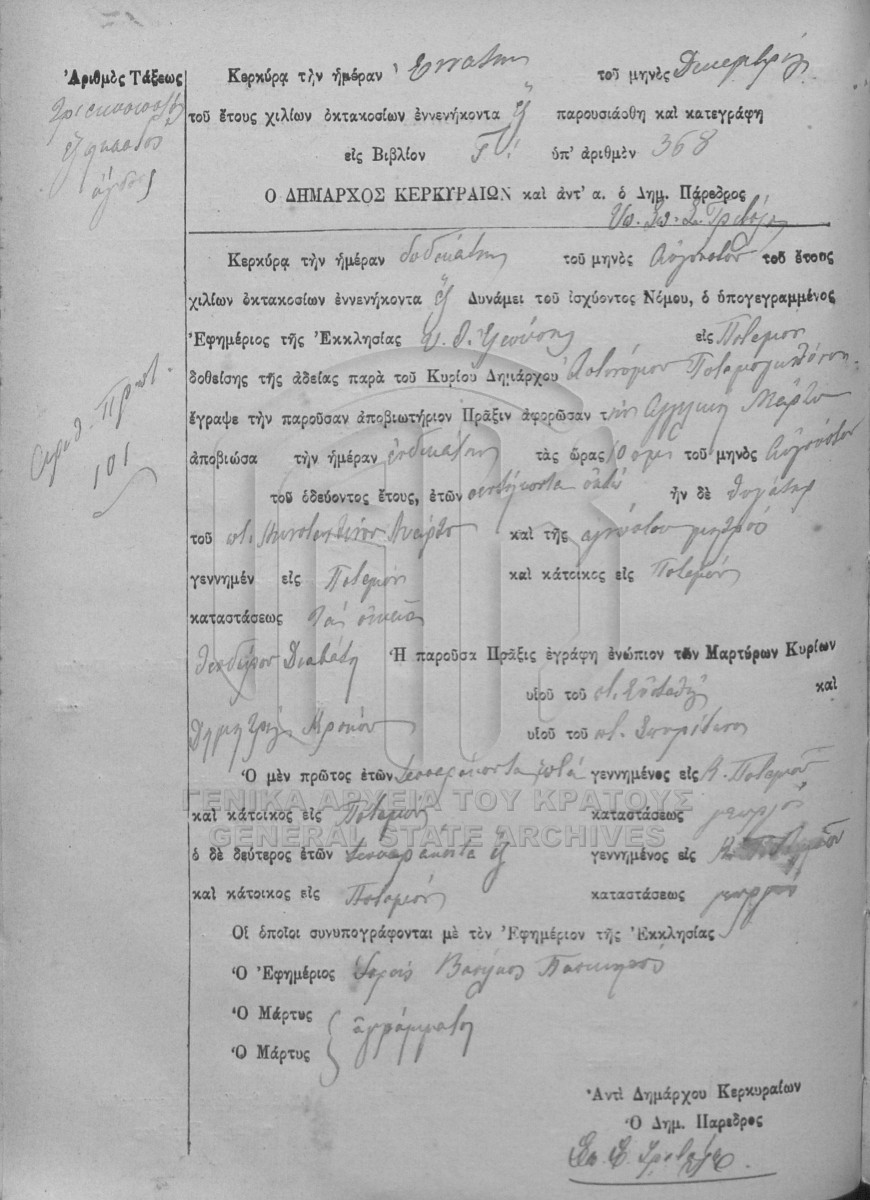 Ἀριθμὸς Τάξεως
ὄγδοος
Ἀριθ. Πρωτ.
101
Κερκύρᾳ τὴν ἡμέραν Ἐννάτην τοῦ μηνὸς Δεκεμβρίου
τοῦ ἔτους χιλίων ὀκτακοσίων ἐννενήκοντα ἓξ παρουσιάσθη καὶ κατεγράφη
εἰς Βιβλίον Γ! ὑπ' ἀριθμὸν 368
Ο ΔΗΜΑΡΧΟΣ ΚΕΡΚΥΡΑΙΩΝ καὶ ἀντ' α. ὁ Δημ. Πάρεδρος
Κερκύρᾳ τὴν ἡμέραν δωδεκάτην τοῦ μηνὸς Αὐγούστου τοῦ ἔτους
χιλίων ὀκτακοσίων ἐννενήκοντα ἓξ Δυνάμει τοῦ ἰσχύοντος Νόμου, ὁ ὑπογεγραμμένος
Ἐφημέριος τῆς Ἐκκλησίας εἰς Ποταμὸν
δοθείσης τῆς ἀδείας παρὰ τοῦ Κυρίου Δημάρχου Ἀστυνόμου
ἔγραψε τὴν παροῦσαν ἀποβιωτήριον Πρᾶξιν ἀφορῶσαν τὴν Ἀγγελικὴ Μάρτο
ἀποβιώσα τὴν ἡμέραν ἑνδεκάτην τὰς ὥρας 10 π.μ. τοῦ μηνὸς Αὐγούστου
τοῦ ὁδεύοντος ἔτους, ἐτῶν πεντήκοντα ὀκτὼ ἦν δὲ θυγάτηρ
τοῦ ποτ. Κωνσταντίνου Μάρτο καὶ τῆς ἀγνώστου μητρός
γεννημέν εἰς Ποταμὸν καὶ κάτοικος εἰς Ποταμὸν
καταστάσεως τὰ οἰκεῖα
Θεοδώρου Ἡ παροῦσα Πρᾶξις ἐγράφη ἐνώπιον τῶν Μαρτύρων Κυρίων
υἱοῦ τοῦ ποτ. Εὐσταθίου καὶ
Δημητρίου υἱοῦ τοῦ ποτ. Σπυρίδωνος
Ὁ μὲν πρῶτος ἐτῶν τεσσαράκοντα ἑπτὰ γεννημένος εἰς Κ. Ποταμοῦ
καὶ κάτοικος εἰς Ποταμὸν καταστάσεως γεωργός
ὁ δὲ δεύτερος ἐτῶν τεσσαράκοντα ἓξ γεννημένος εἰς Κ. Ποταμοῦ
καὶ κάτοικος εἰς Ποταμὸν καταστάσεως γεωργός
Οἱ ὁποῖοι συνυπογράφονται μὲ τὸν Ἐφημέριον τῆς Ἐκκλησίας
Ὁ Ἐφημέριος Ἱερεὺς Βασίλειος
Ὁ Μάρτυς ἀγράμματοι
Ὁ Μάρτυς
Ἀντὶ Δημάρχου Κερκυραίων
Ὁ Δημ. Πάρεδρος
ΓΕΝΙΚΑ ΑΡΧΕΙΑ ΤΟΥ ΚΡΑΤΟΥΣ
GENERAL STATE ARCHIVES